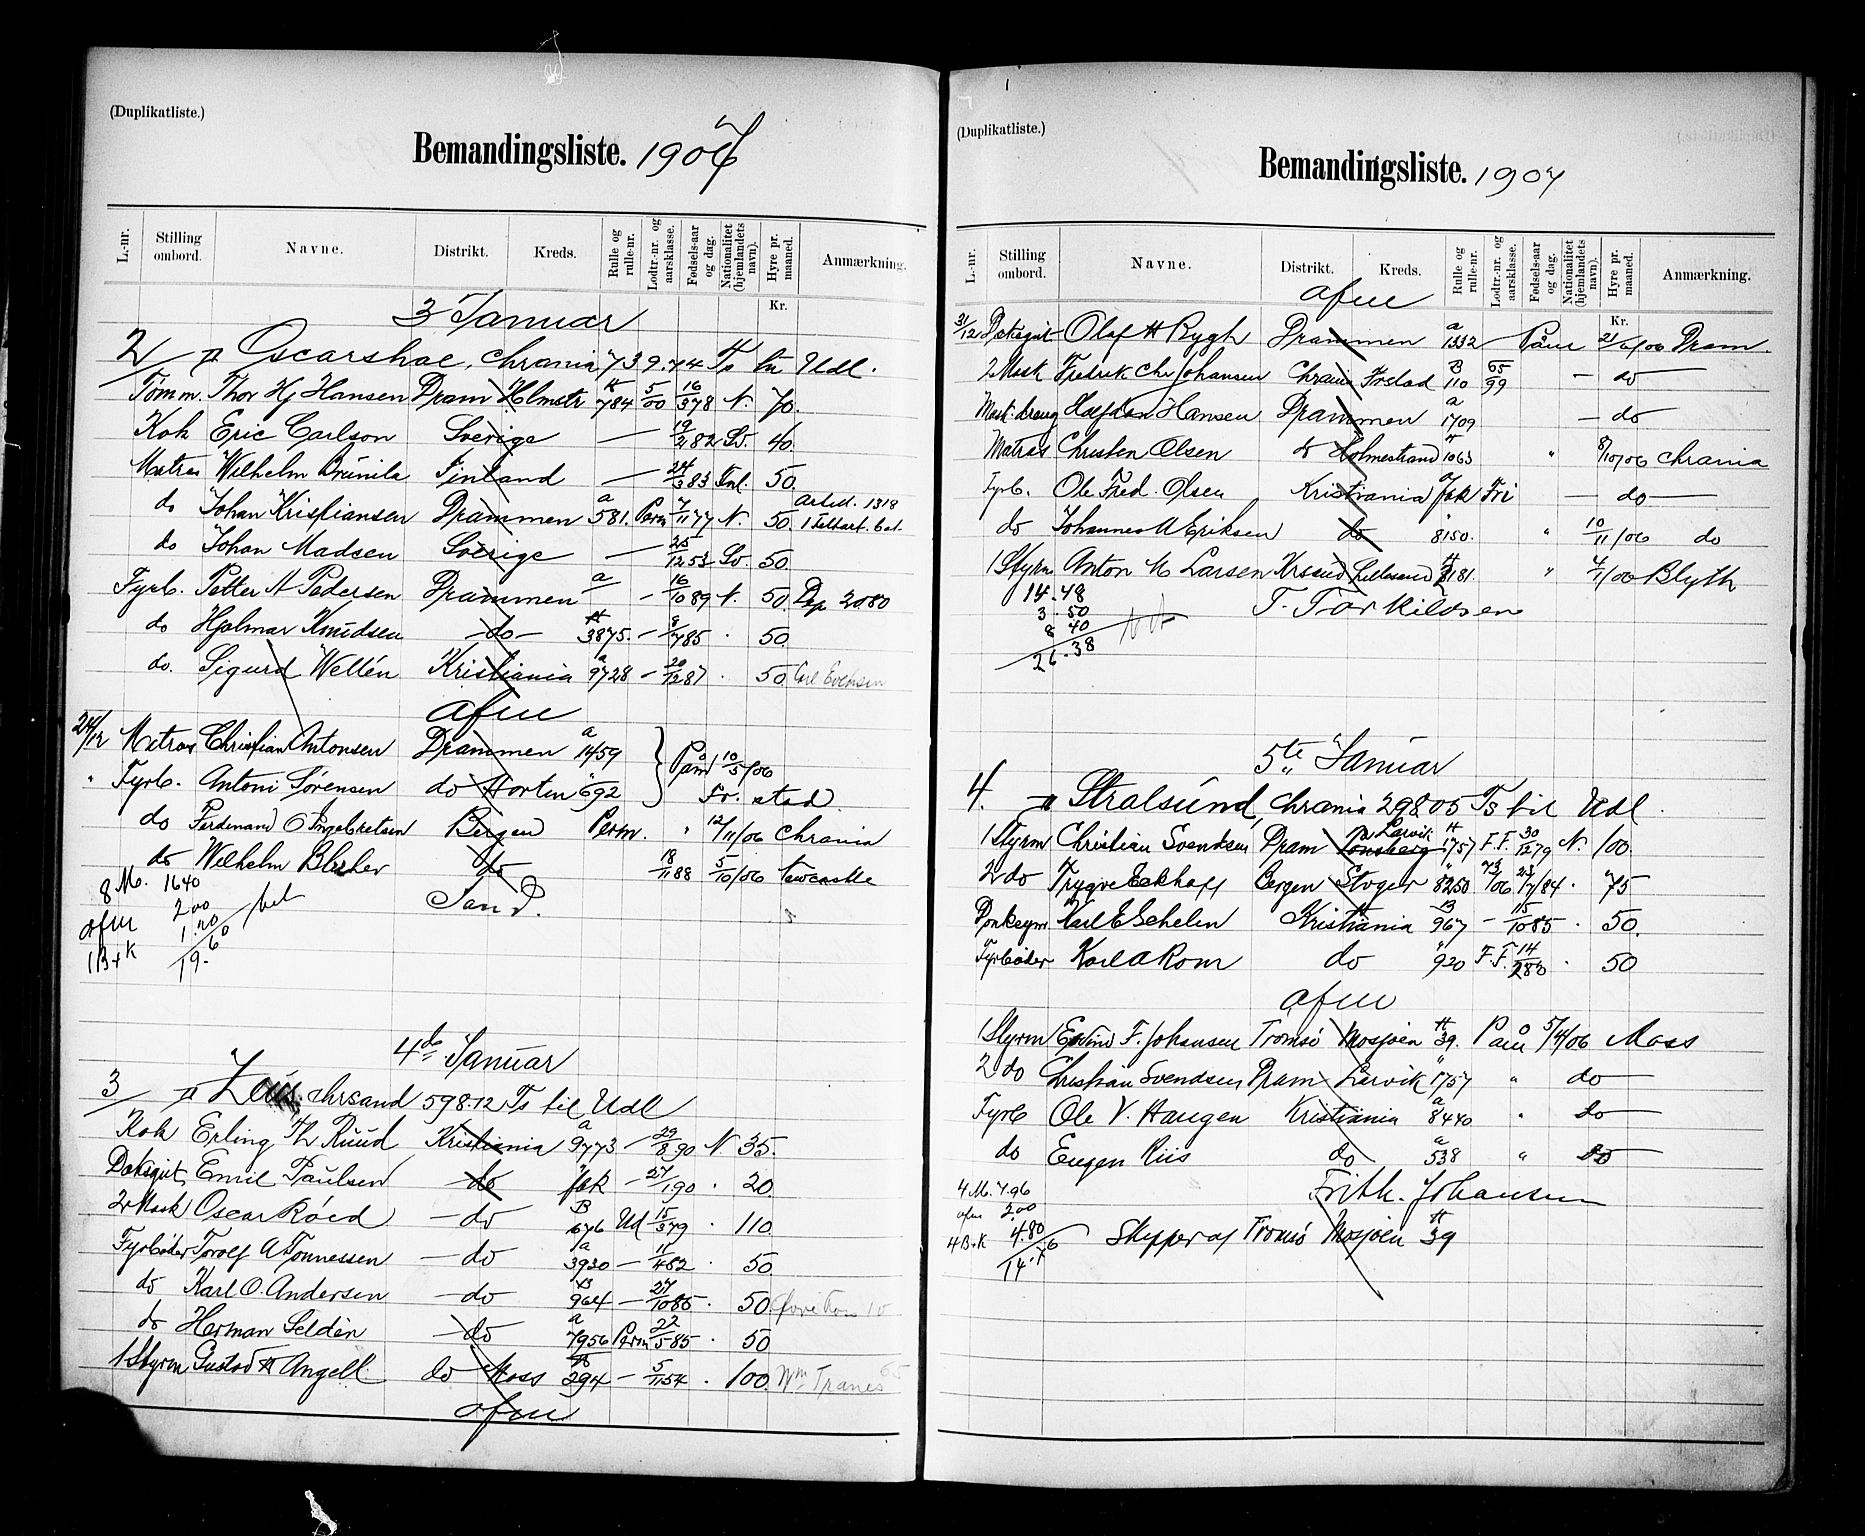 (Duplikatliste.)
Bemandingsliste. 1907
L.-nr. Stilling ombord. Navne. Distrikt. Kreds. Rulle og rulle-nr. Lodtr.-nr. og aarsklasse. Fødsels-aar og dag. Nationalitet (hjemlandets navn). Hyre pr. maaned. Anmærkning.
Kr.
3 Januar
2/ Oscarshal, Chrania 739.74 Ts til Udl.
Tømm. Thor Hj Hansen Dram Holmstr H 784 5/00 16/3 78 N. 70.
Kok Eric Carlson Sverige — 19/2 82 Sv. 40.
Matros Wilhelm Brunila Finland — 24/6 83 Fnl. 50.
do Johan Kristiansen Drammen a 581. Perm 7/11 77 N. 50.
do Johan Madsen Sverige — 25/12 53 Sv. 50
Fyrb. Petter A Pedersen Drammen a — 16/10 89 N. 50 Dep 2080
do Hjalmar Knudsen — do — H 3875. — 8/7 85 . 50.
do. Sigurd Wellén Kristiania a 9728 — 20/12 87 . 50 Carl Evensen
afm
24/12 Matros Christian Antonsen Drammen a 1459 Paam 10/5/06
" Fyrb. Antoni Sørensen do Horten 692 Fr. stad
do Ferdinand O Ingebretsen Bergen Perm. " 12/11/06 Chrania
do Wilhelm Blecher do 18/11 88 5/10/06 Newcastle
8 M. 1640
afm 200 bet
1 B+K 1.20
19.60
Sand.
4de Januar
3/ Zeus, Chrsand 598.12 Ts til Udl
Kok Erling Th Ruud Kristiania a 9773 — 29/8 90 N 35.
Dæksgut Emil Paulsen — do fsk — 27/1 90 . 20.
2 Mask Oscar Röed — do B 676 Ud 15/3 79 . 110
Fyrbøder Torolf A Tønnessen — do a 3930 — 11/4 82 . 50
do Karl O. Andersen — do B 964 — 27/10 85 . 50
do Herman Seldén — do a 7956 Perm 22/5 85 . 50
1 Styrm Gustav H Angell do Moss H 294 — 5/11 54 . 100
afm
(Duplikatliste.)
Bemandingsliste. 1907
L.-nr. Stilling ombord. Navne. Distrikt. Kreds. Rulle og rulle-nr. Lodtr.-nr. og aarsklasse. Fødsels-aar og dag. Nationalitet (hjemlandets navn). Hyre pr. maaned. Anmærkning.
afm
Kr.
31/12 Dæksgut Olaf H Rygh Drammen a 1332 Paam 21/6/06 Dram.
2 Mask Fredrik Chr Johansen Chrania Frstad B 110 65/99 — do —
Halfdan Hansen Drammen a 1709 — do
Matros Christen Olsen do Holmestrand H 1063 " 8/10/06 Chrania
Fyrb. Ole Fred. Olsen Kristiania fsk Fri — do —
do Johannes A Eriksen do 8150. " 10/11/06 do
1 Styrm Anton M Larsen Krsand Lillesand H 181. " 4/1/06 Blyth
14.48
3.50
8 40
26.38
T. Torkildsen
5te Januar
4. Stralsund, Chrania 298.05 Ts til Udl.
1 Styrm Christian Svendsen Dram Tønsberg Larvik H 1757 F.F. 30/12 79 N. 100.
2 do Trygve Eckhoff Bergen Stvger 8250 73/06 23/7 84 . 75
Karl E Schelin Kristiania B 967 — 15/10 85 . 50.
Fyrbøder Karl A Rom do " 920 F.F. 14/2 80 . 50
afm
1 Styrm Eivind F. Johansen Tromsø Mosjøen H 39. Paam 5/4/06 Moss
2 do Christian Svendsen Dram Larvik " 1757 " do —
Fyrb Ole V. Haugen Kristiania a 8440 " do —
do Eugen Riis do a 538 " do
4 M. 7.96
afm 200
4 B+K 4.80
14.76
Frith. Johansen
Skipper af Tromsø Mosjøen H 39